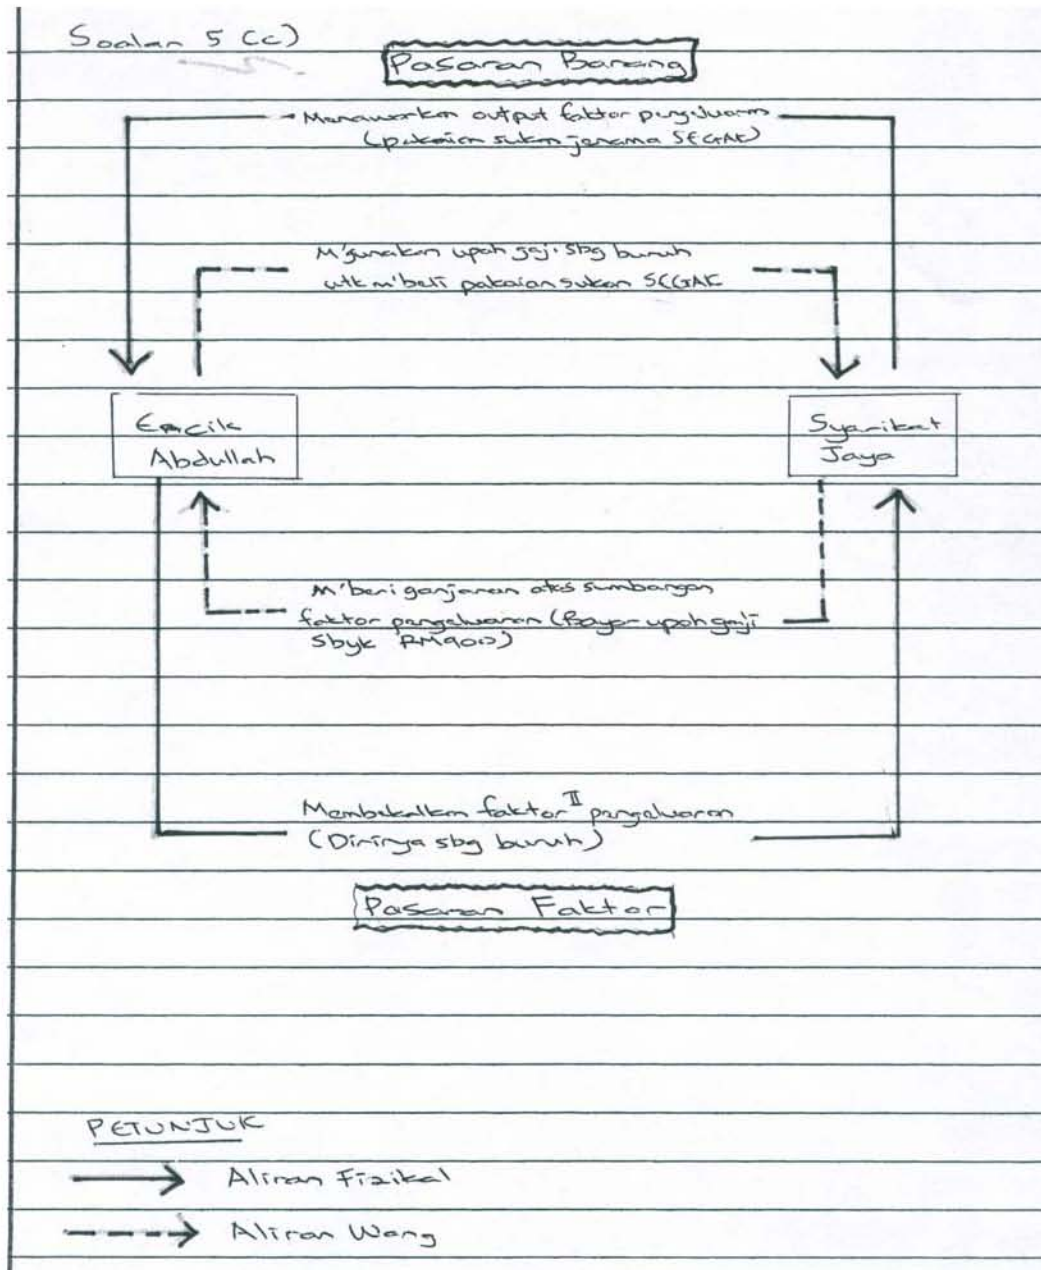 Soalan 5 (c)
Pasaran Barang
Menawarkan output faktor pengeluaran
(pakaian sukan jenama SEGAK)
M'gunakan upah gaji sbg buruh
utk m'beli pakaian sukan SEGAK
Encik
Abdullah
Syarikat
Jaya
M'beri ganjaran atas sumbangan
faktor pengeluaran (Bayar upah gaji
sbyk RM900)
Membekalkan faktor II pengeluaran
(Dirinya sbg buruh)
Pasaran Faktor
PETUNJUK
Aliran Fizikal
Aliran Wang